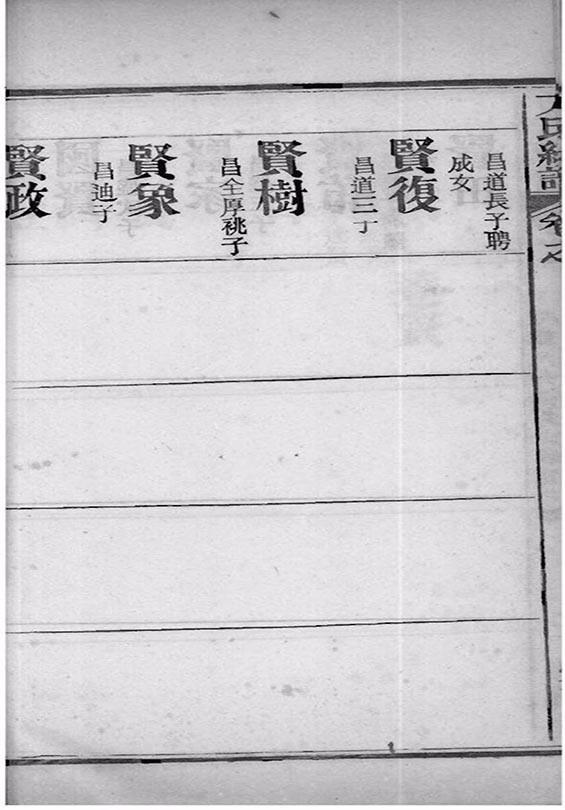 氏總譜
卷之
昌道長子聘
成女
賢復
昌道三丁
賢樹
昌全厚祧子
賢象
昌迪子
賢政